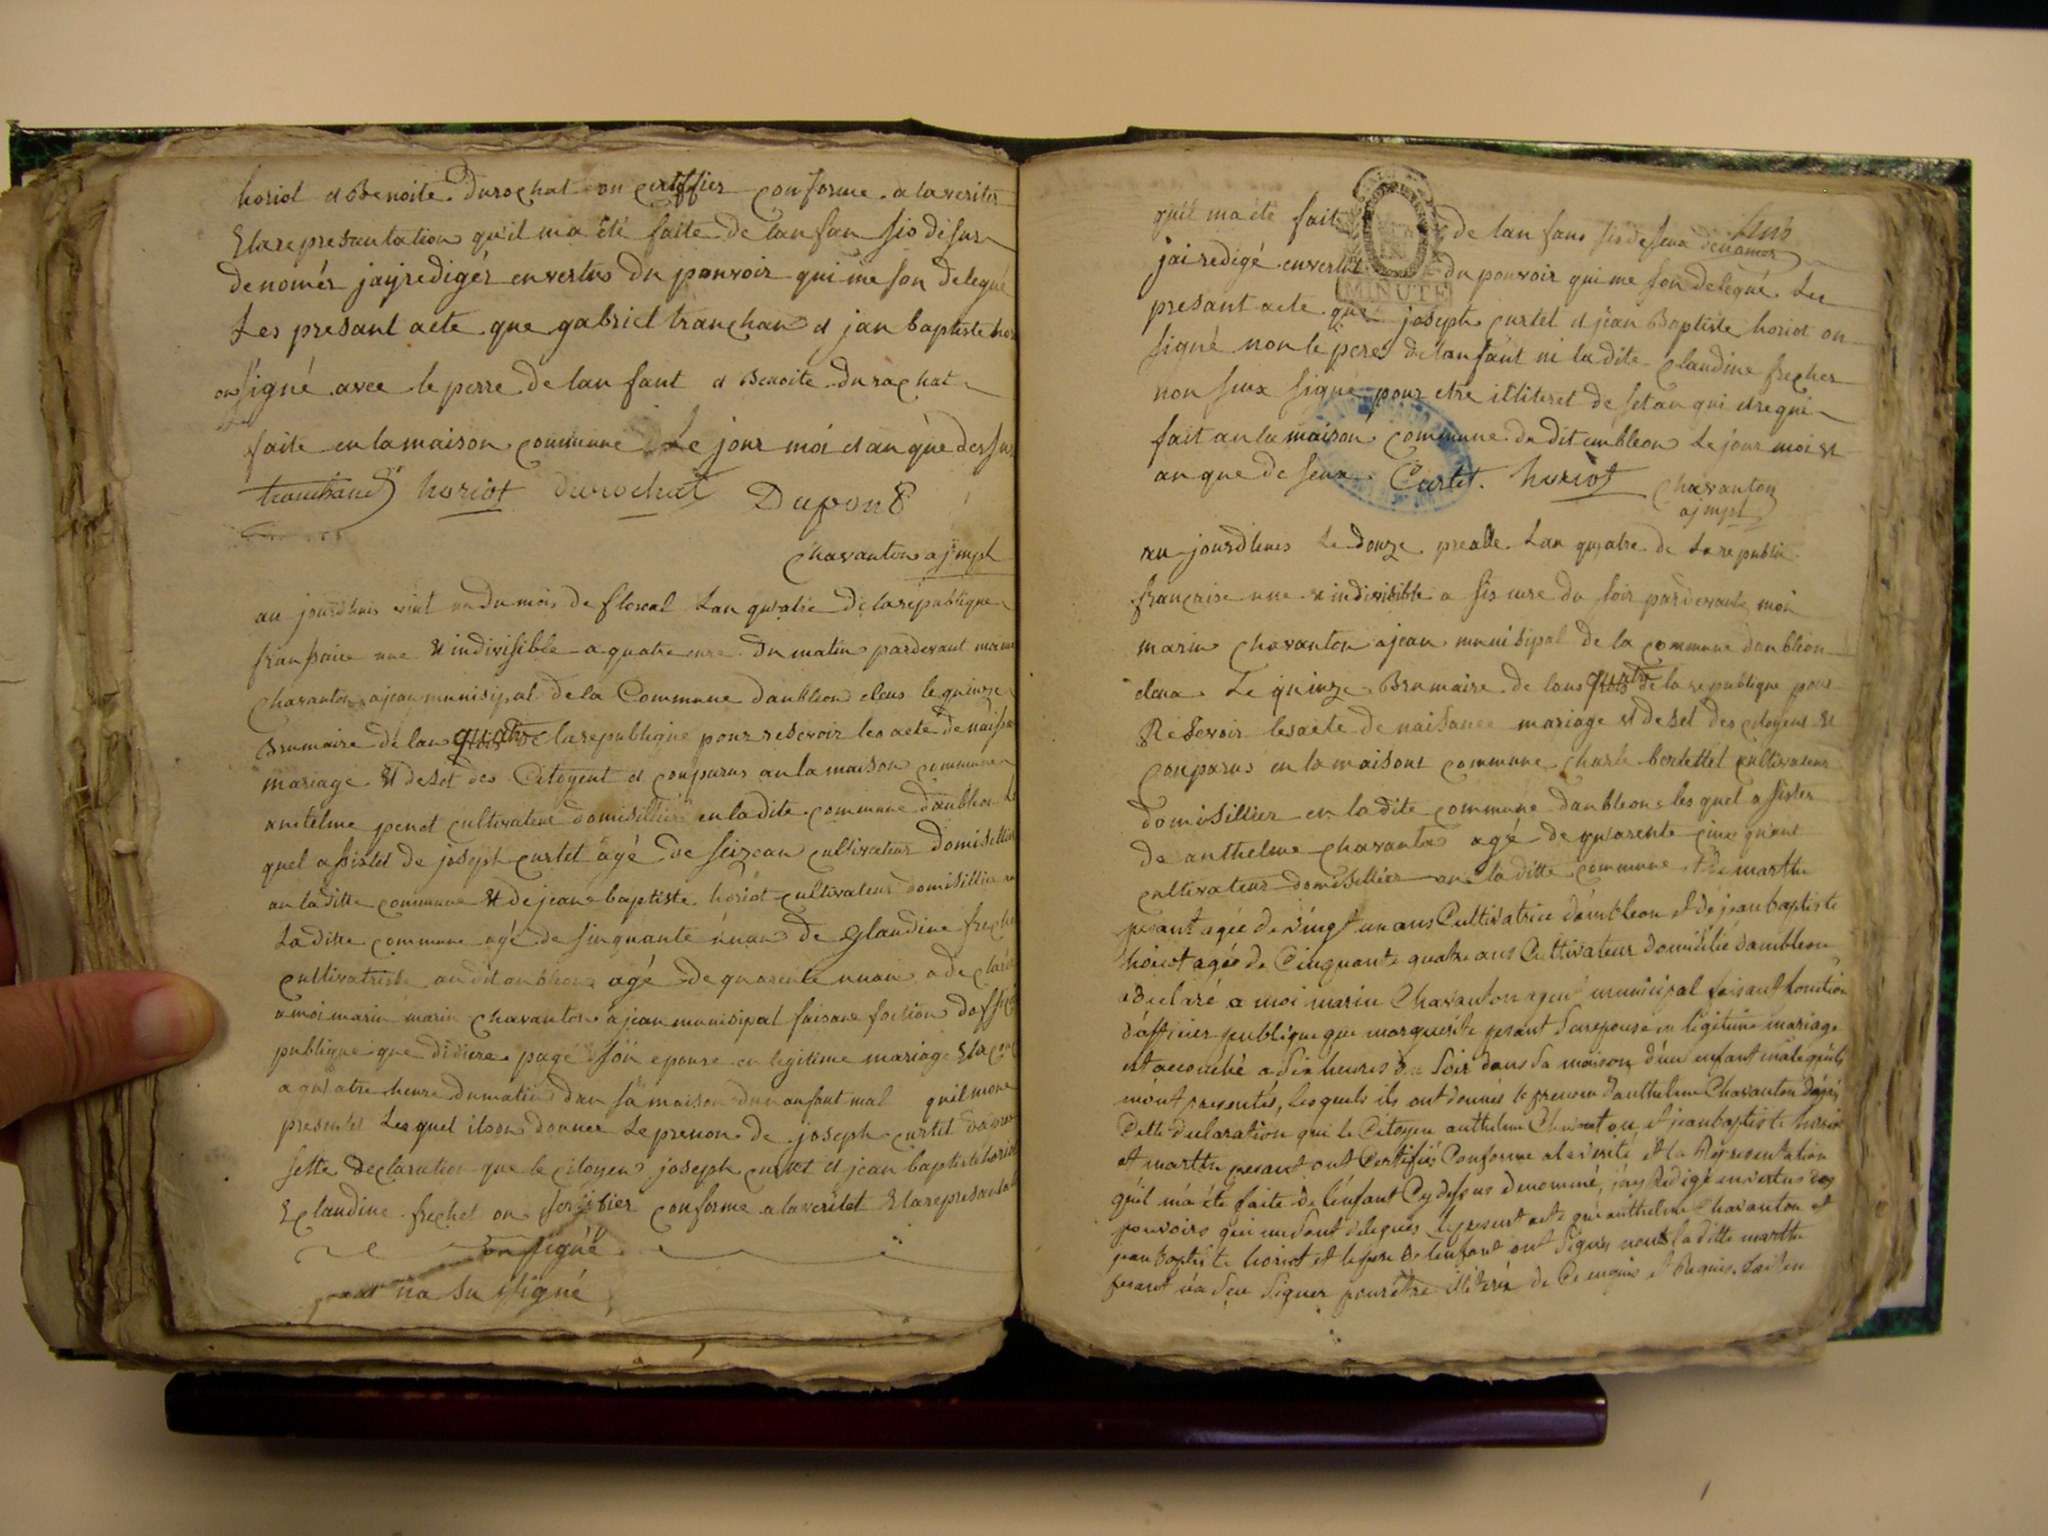 horiot et Benoite Durochat on certiffier conforme a la veriter
& la represantation qu'il ma été faite de lanfan sis desu
denomér jay redigér en vertus du pouvoir qui me son delegué
Les presant acte que gabriel tranchan et jan baptiste hor
on signé avec le perre de lanfant et Benoite durochat
faite en la maison commune Le jour moi et an que dessu
tranchand horiot durochat Dupont
Chavanton ajmpl
au jourdhuis vint un du mois de floreal Lan quatre de la republique
franfaice une & indivisible a quatre eure du matin pardevant
Chavanton ajean munisipal de la Commune danbleon eleus le quinze
Brumaire de lan quatre de la republique pour resevoir les acte de naissa
mariage & deset des Citoyent et conparus an la maison commune
antelme penet cultivateur domisillier en la dite commune danbleon
quel assistet de joseph curtet agé de seizean cultivateur domisillier
an la ditte commune & de jean baptiste horiot cultivateur domisillier
La ditte commune agé de sinquante et de glaudine freche
cultivatrise au dit anbleon agé de quarente a declaré
a moi marin marin chavanton ajean munisipal faisane foction doffi
publique que didiere page son epouse en legitime mariage
a quatre heure du matin dan sa maison dun anfant mal quil mone
presentet Lesquel ilson donnee Le prenon de joseph curtet
sette declaration que le citoyen joseph curtet et jean baptiste horiot
& claudine frechet on sertifier conforme a la veritet & la represantat
on signé
na su signé
quil ma été fait de lanfans sis deseux denomér
jai redigé en vertus du pouvoir qui me son delegué Les
MINUTE
presant acte que joseph curtet et jean Baptiste horiot on
signé non le pere de lanfant ni la dite claudine frecher
non seux signé pour etre illiteret de set an qui et requi
fait an la maison commune du dit embleon Le jour moi et
an que de seux Curtet. horiot Chavanton
ajmpl
au jourdhuis Le douze prealle Lan quatre de La republic
française une & indivisible a sis eure du soir pardevant moi
marin chavanton ajean munisipal de la commune danbleon
eleux Le quinze Brumaire de lans quatre de la republique pour
Resevoir les acte de naisance mariage & deset des citoyent &
conparus en la maisont commune Charle bertettet cultivateur
domisillier en la dite commune danbleon lesquel assister
de anthelme chavanton agé de quarente cinq
cultivateur domisillier an la ditte commune et de marthe
pesant agée de vingt un ans Cultivatrice dambleon et de jean baptiste
horiot agée de Cinquante quatre ans Cultivateur domicilié dambleon
a declaré a moi marin Chavanton agent municipal faisant fonction
d'afficier publique que marguerite pesant son epouse en legitime mariage
est accouché a six heures du soir dans sa maison d'un enfant male qu'ils
m'ont presentés, lesquels ils ont donnés le prenom d'anthelme Chavanton
Cette declaration que le Citoyen anthelme Chavanton et jean baptiste horiot
et marthe pesant ont Certifiés Conforme a la verité et la Representation
qu'il m'a été faite de l'enfant Cy dessus denommé, j'ay Redigé en vertus des
pouvoirs qui me sont delegués le present acte que anthelme Chavanton et
jean baptiste horiot et le pere de l'enfant ont signés non la ditte marthe
pesant n'a sceu signer pour être illiterée de Ce enquis et Requis. Fait en